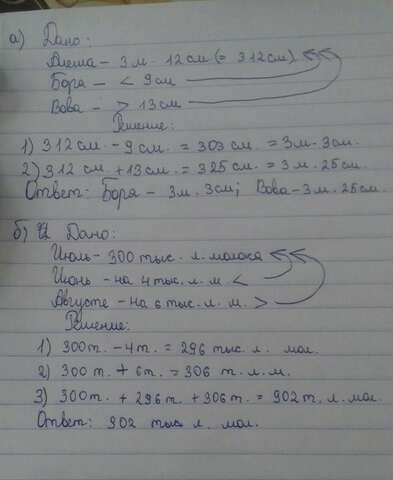 а) Дано:
Алеша - 3м. 12см (= 312см)
Боря - < 9см
Вова - > 13см
Решение:
1) 312см. - 9см. = 303см. = 3м. 3см.
2) 312см. + 13см. = 325см. = 3м. 25см.
Ответ: Боря - 3м. 3см; Вова - 3м. 25см.
б) Дано:
Июль - 300 тыс. л. молока
Июнь - на 4 тыс. л. м. <
Августе - на 6 тыс. л. м. >
Решение:
1) 300т. - 4т. = 296 тыс. л. мол.
2) 300т. + 6т. = 306 т. л. м.
3) 300т. + 296т. + 306т. = 902т. л. мол.
Ответ: 902 тыс л. мол.